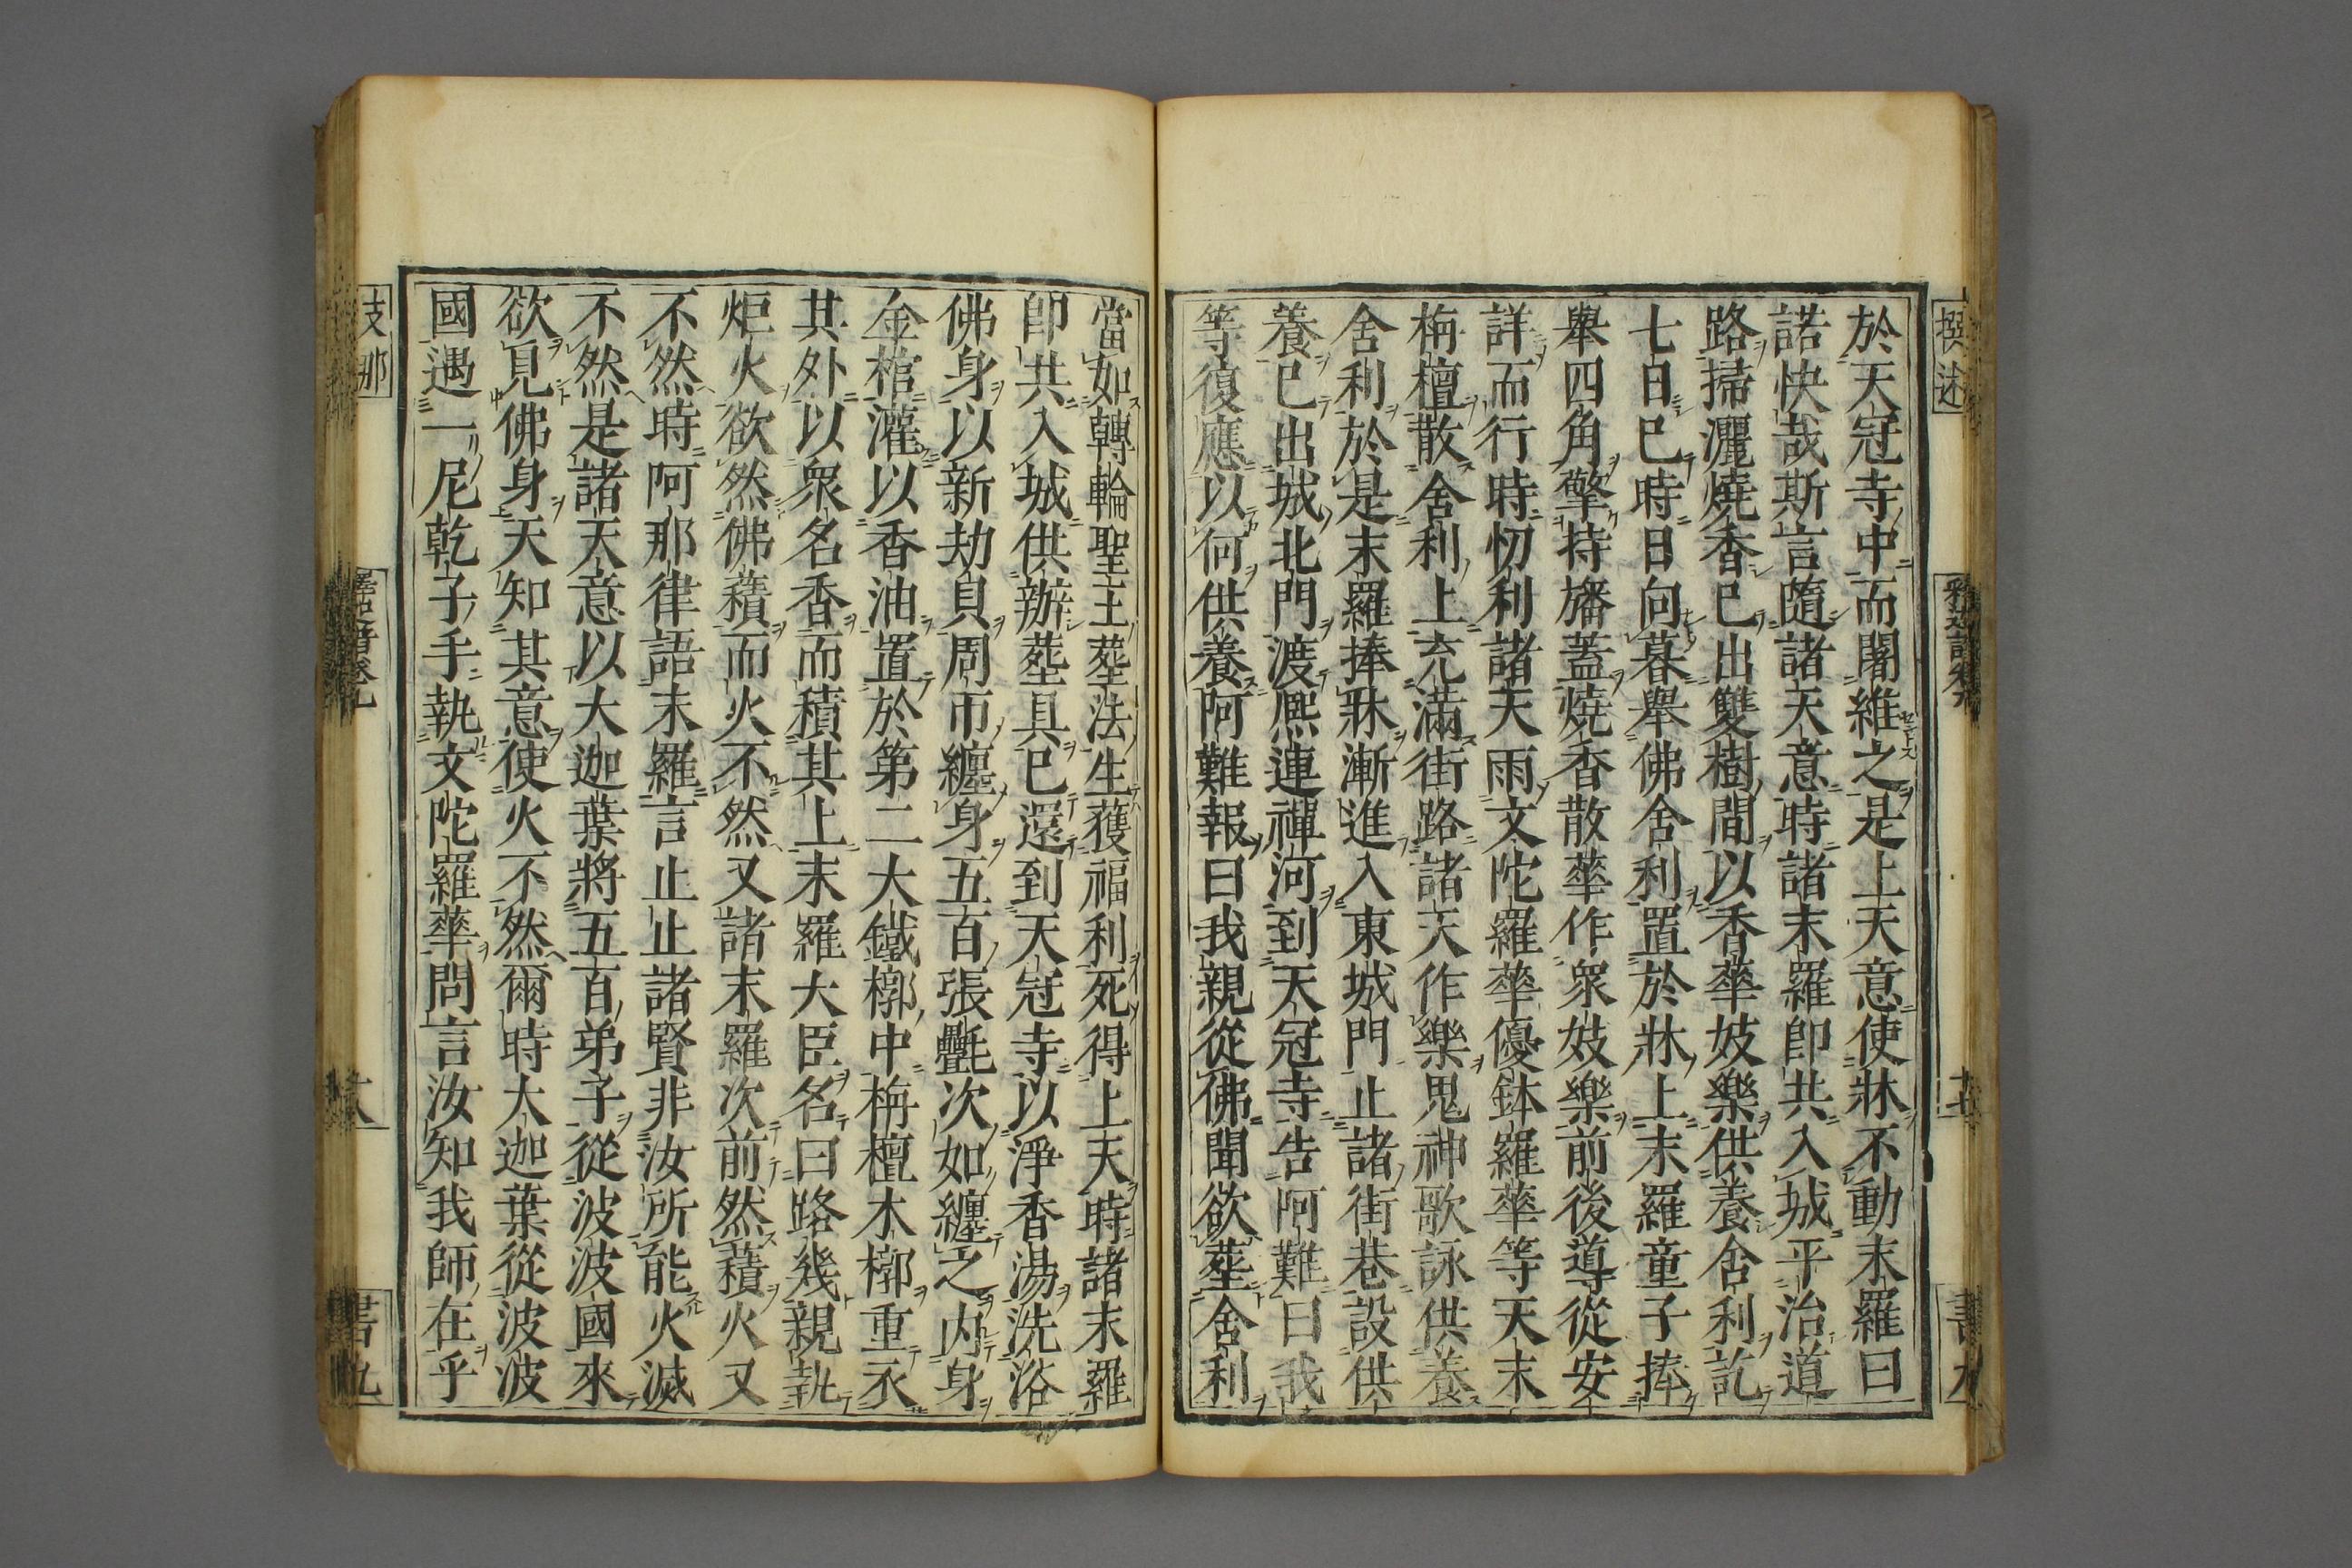 撰述
於天冠寺中而闍維之是上天意使牀不動末羅曰
諾快哉斯言隨諸天意時諸末羅即共入城平治道
路掃灑燒香已出雙樹間以香華妓樂供養舍利訖
七日已時日向暮舉佛舍利置於牀上末羅童子捧
舉四角擎持旛蓋燒香散華作衆妓樂前後導從安
詳而行時忉利諸天雨文陀羅華優鉢羅華等天末
栴檀散舍利上充滿街路諸天作樂鬼神歌詠供養
舍利於是末羅捧牀漸進入東城門止諸街巷設供
養已出城北門渡熈連禪河到天冠寺告阿難曰我
等復應以何供養阿難報曰我親從佛聞欲塟舍利
當如轉輪聖王塟法生獲福利死得上天時諸末羅
即共入城供辦塟具已還到天冠寺以淨香湯洗浴
佛身以新劫貝周帀纏身五百張㲲次如纏之内身
金棺灌以香油置於第二大鐵槨中栴檀木槨重衣
其外以衆名香而積其上末羅大臣名曰路幾親執
炬火欲然佛䕆而火不然又諸末羅次前然䕆火又
不然時阿那律語末羅言止止諸賢非汝所能火滅
不然是諸天意以大迦葉將五百弟子從波波國來
欲見佛身天知其意使火不然爾時大迦葉從波波
國遇一尼乾子手執文陀羅華問言汝知我師在乎
支那